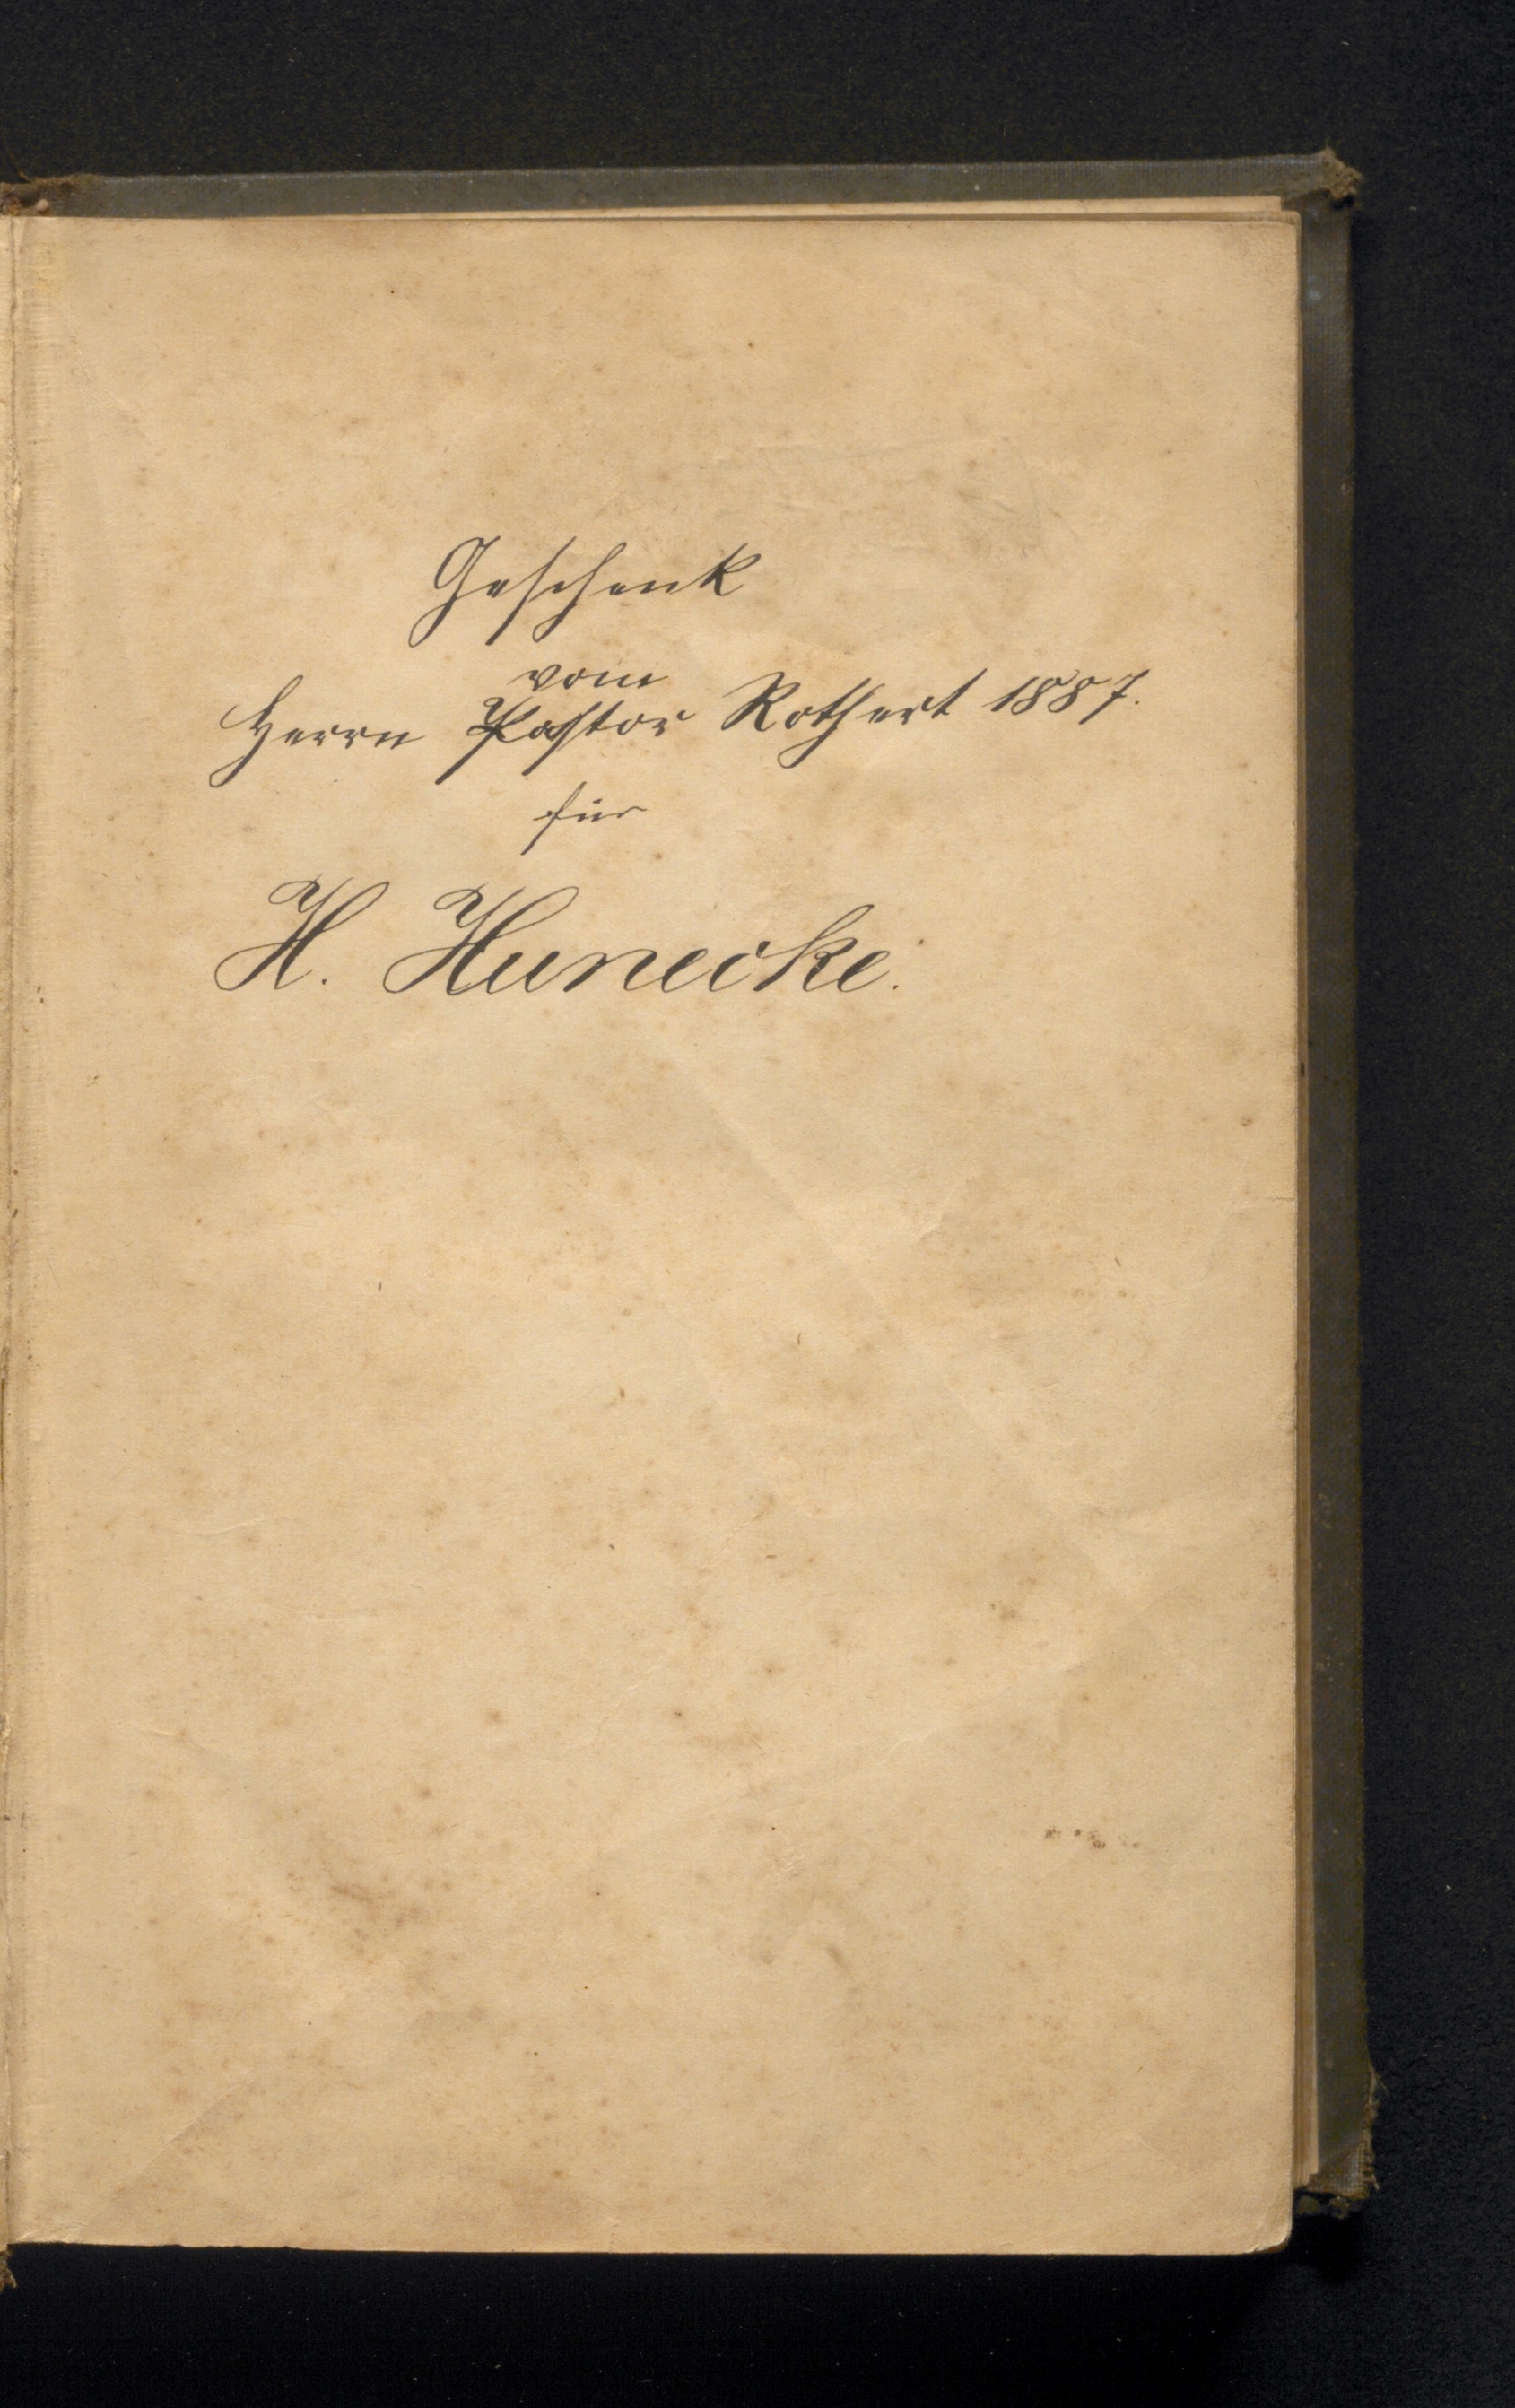 Geschenk
vom
Herrn Pastor Rothert 1887.
für
H. Hunecke.